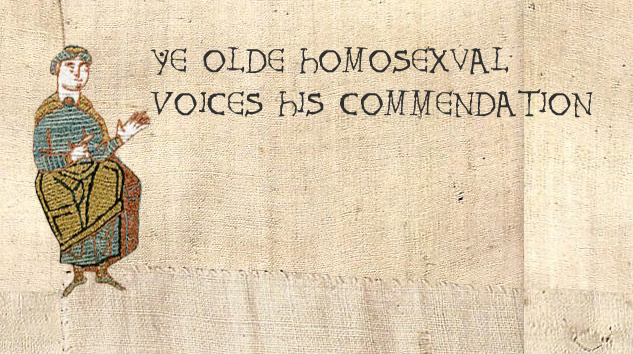 YE OLDE HOMOSEXVAL
VOICES HIS COMMENDATION